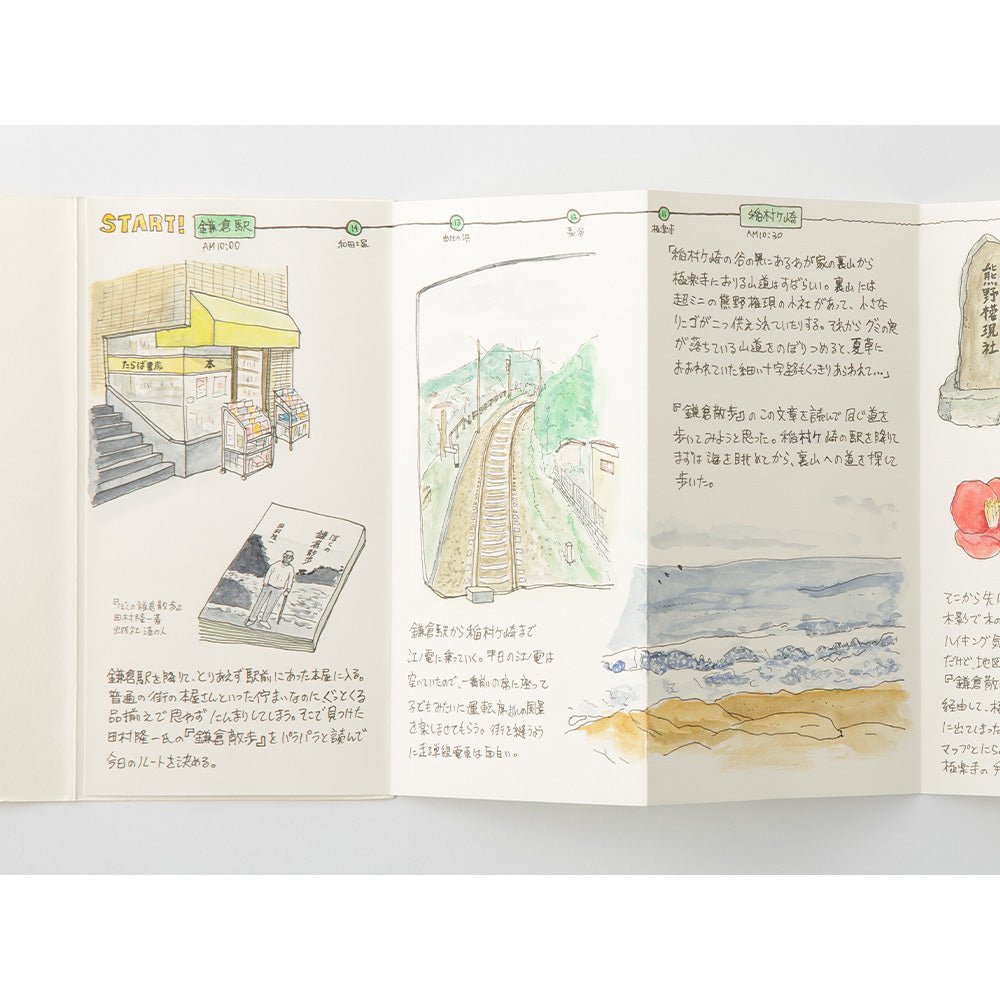 START! 鎌倉駅
AM10:00
14
和田塚
13
由比ヶ浜
12
長谷
11
極楽寺
稲村ヶ崎
AM10:30
たらば書房 本
ぼくの
鎌倉散歩
田村隆一
『ぼくの鎌倉散歩』
田村隆一著
出版社 港の人
鎌倉駅を降りて、とりあえず駅前にあった本屋に入る。
普通の街の本屋さんといった佇まいなのにぐっとくる
品揃えで思わずにんまりしてしまう。そこで見つけた
田村隆一氏の『鎌倉散歩』をパラパラと読んで
今日のルートを決める。
鎌倉駅から稲村ヶ崎まで
江ノ電に乗っていく。平日の江ノ電は
空いていたので、一番前の席に座って
子どもみたいに運転席越しの風景
を楽しませてもらう。街を縫うよう
に走る単線電車は面白い。
「稲村ヶ崎の谷の奥にあるわが家の裏山から
極楽寺におりる山道はすばらしい。裏山には
超ミニの熊野権現の小社があって、小さな
リンゴが二つ供えられていたりする。それからグミの実
が落ちている山道をのぼりつめると、夏草に
おおわれていた細い十字路もくっきりあらわれて…」
『鎌倉散歩』のこの文章を読んで同じ道を
歩いてみようと思った。稲村ヶ崎の駅を降りて
まずは海を眺めてから、裏山への道を探して
歩いた。
熊野権現社
そこから先は
木影で木の
ハイキング気
だけど地図
『鎌倉散
経由して、極
に出てしまった
マップとにら
極楽寺の